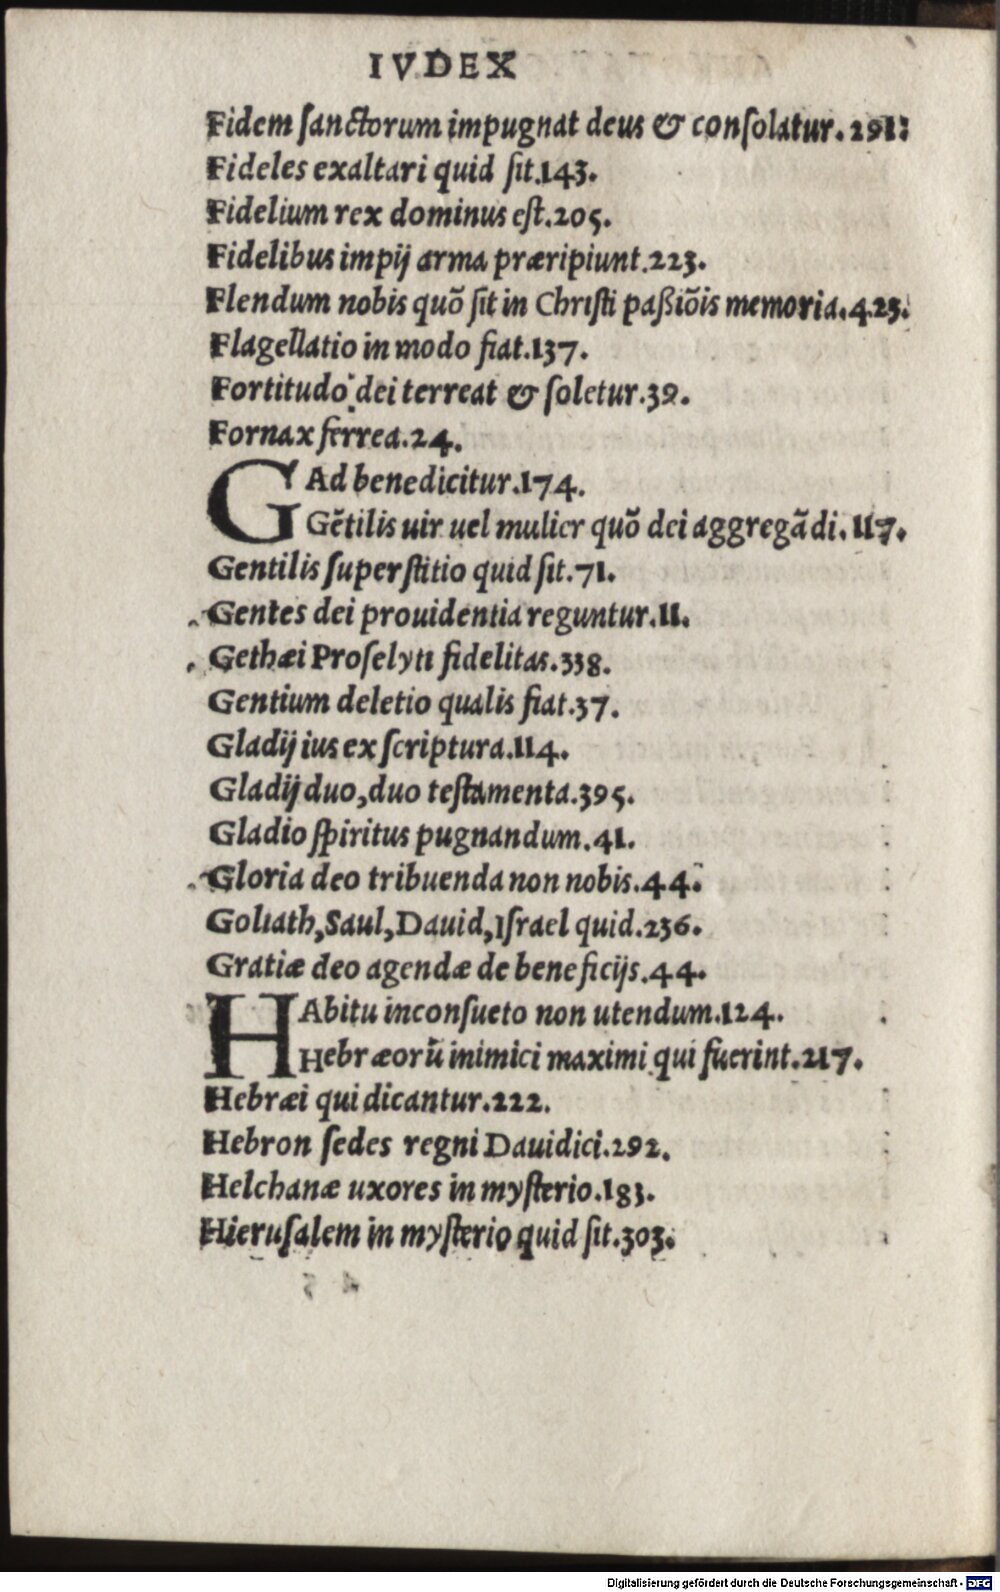 IVDEX
Fidem sanctorum impugnat deus & consolatur. 291:
Fideles exaltari quid sit.143.
Fidelium rex dominus est.205.
Fidelibus impij arma præripiunt.223.
Flendum nobis quõ sit in Christi paßiõis memoria.423.
Flagellatio in modo fiat.137.
Fortitudo dei terreat & soletur.39.
Fornax ferrea.24.
GAd benedicitur.174.
Gẽtilis uir uel mulier quõ dei aggregãdi.117.
Gentilis superstitio quid sit.71.
Gentes dei prouidentia reguntur.11.
Gethæi Proselyti fidelitas.338.
Gentium deletio qualis fiat.37.
Gladij ius ex scriptura.114.
Gladij duo,duo testamenta.395.
Gladio spiritus pugnandum.41.
Gloria deo tribuenda non nobis.44.
Goliath,Saul,Dauid,Israel quid.236.
Gratiæ deo agendæ de beneficijs.44.
HAbitu inconsueto non utendum.124.
Hebræorũ inimici maximi qui fuerint.217.
Hebræi qui dicantur.222.
Hebron sedes regni Dauidici.292.
Helchanæ uxores in mysterio.183.
Hierusalem in mysterio quid sit.303.
Digitalisierung gefördert durch die Deutsche Forschungsgemeinschaft - DFG